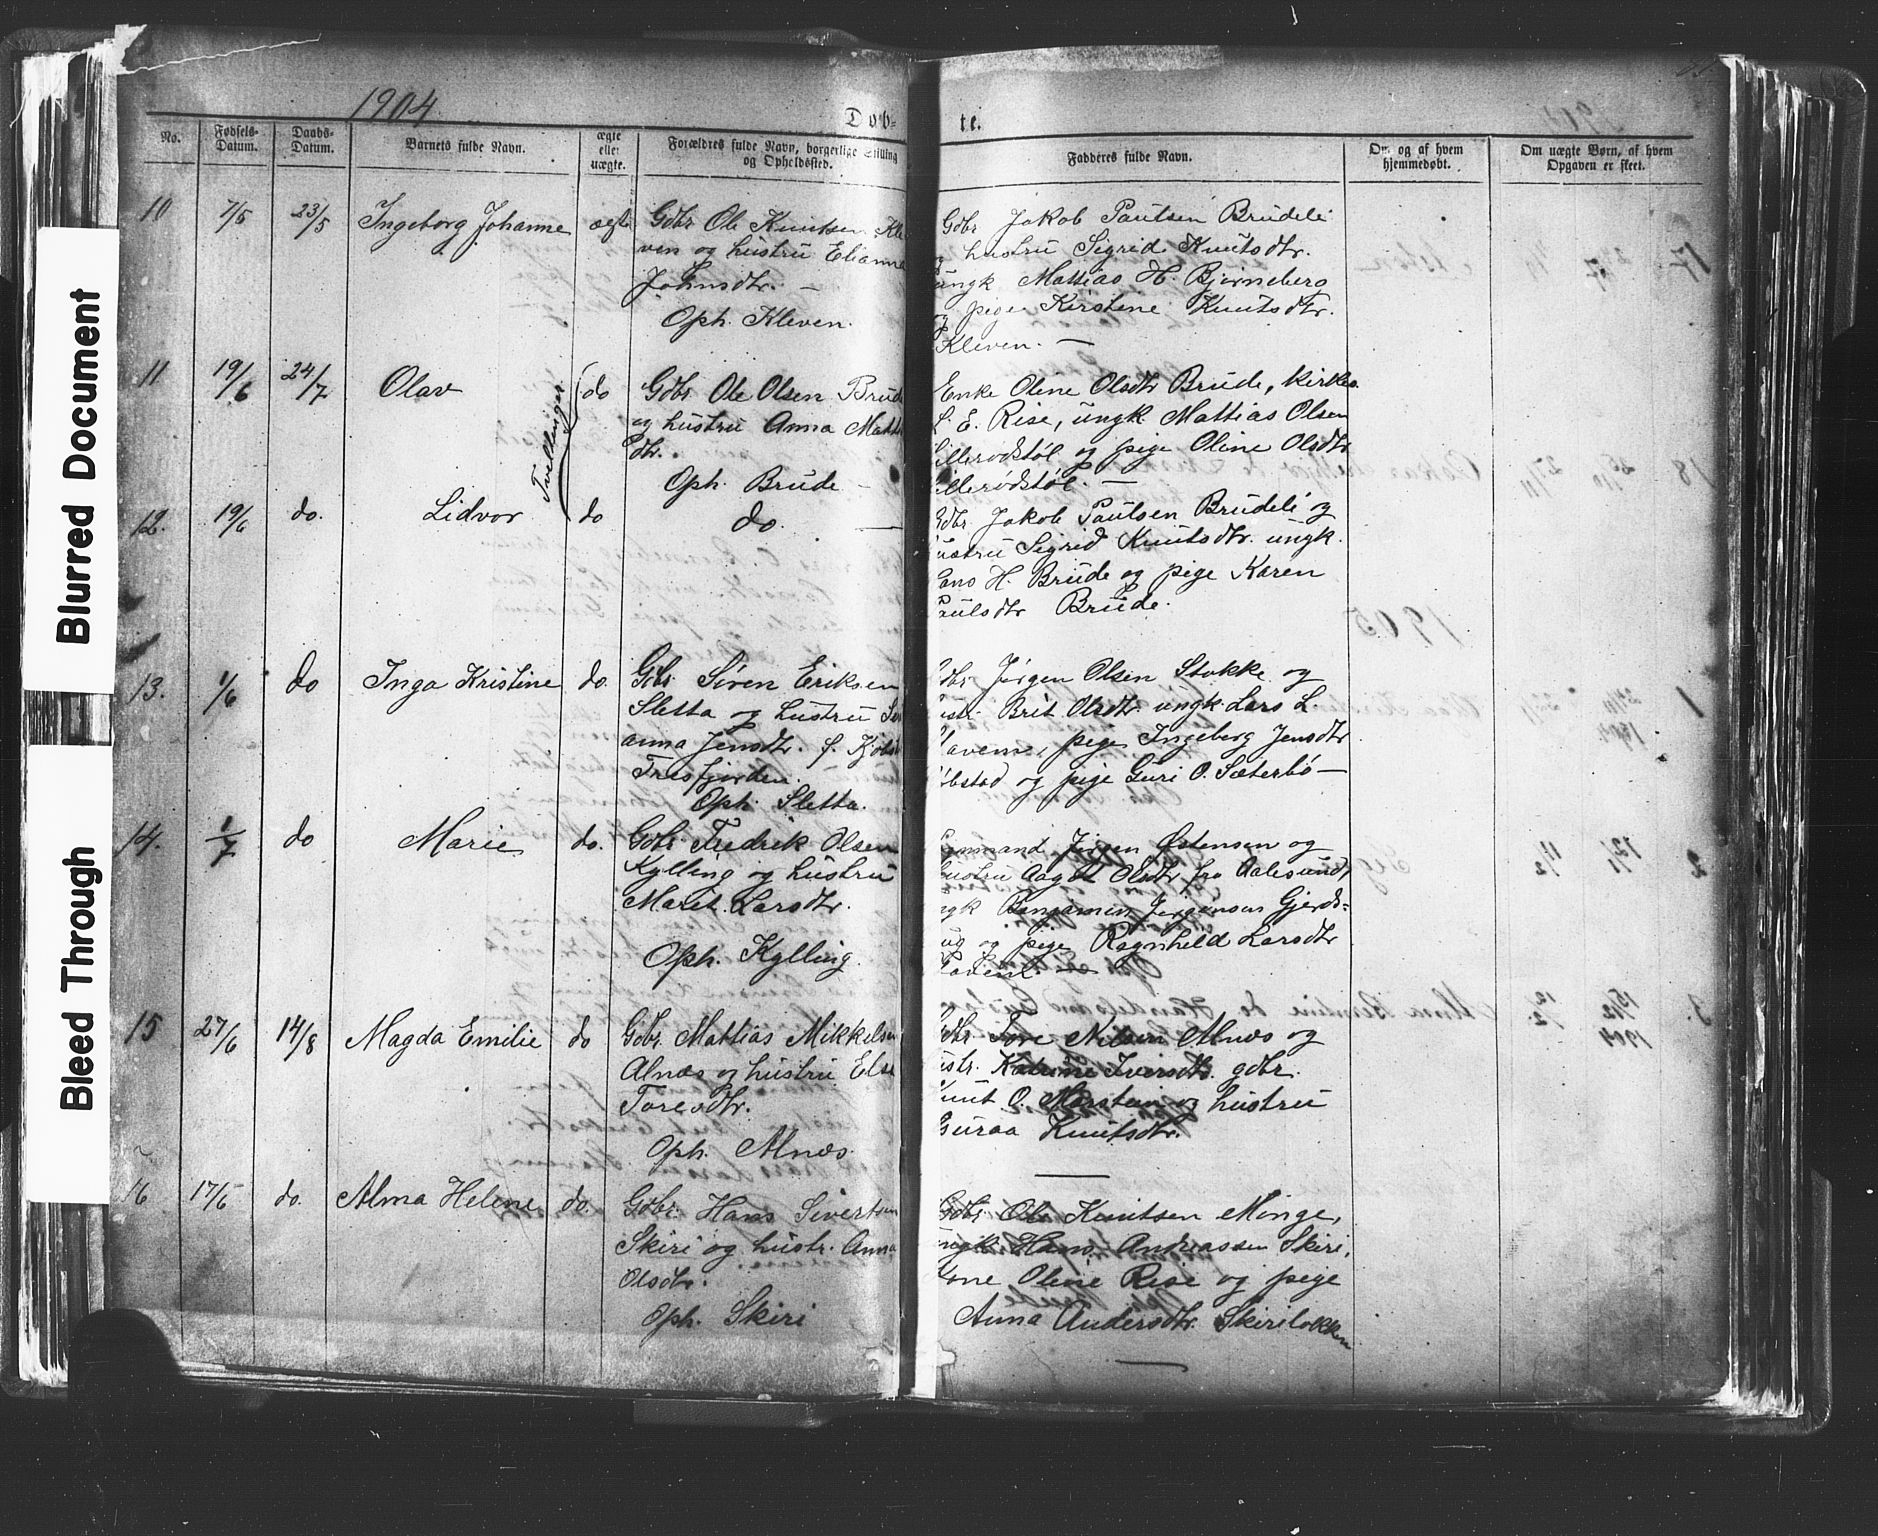 1904
Døb-
te.
No.
Fødsels-
Datum.
Daabs-
Datum.
Barnets fulde Navn.
ægte
eller
uægte.
Forældres fulde Navn, borgerlige Stilling
og Opholdssted.
Fadderes fulde Navn.
Om og af hvem
hjemmedøbt.
Om uægte Børn, af hvem
Opgaven er skeet.
10
7/5
23/5
Ingeborg Johanne
ægte
Gdbr Ole Knutsen Kle
ven og hustru Elianna
Johnsdtr. —
Oph. Kleven.
Gdbr Jakob Paulsen Brudeli
og hustru Sigrid Knutsdtr.
ungk Mattias H. Bjørneberg
og pige Kirstine Knutsdtr.
Kleven. —
11
19/6
24/7
Olav
Tvillinger
do
Gdbr Ole Olsen Brude
og hustru Anna Matt
dtr.
Oph. Brude —
Enke Oline Olsdtr Brude, kirkes.
L. E. Rise, ungk Mattias Olsen
illerødstøl og pige Oline Olsdtr
illerødstøl. —
12.
19/6
do.
Lidvor
do
do. —
Gdbr. Jakob Paulsen Brudeli og
ustru Sigrid Knutsdtr. ungk.
ans H. Brude og pige Karen
Paulsdtr Brude.
13.
1/6
do
Inga Kristine
do.
Gdbr. Søren Eriksen
Sletta og hustru
anna Jensdtr. f.
Tresfjorden.
Oph. Sletta.
dbr Jørgen Olsen Stokke og
ustr. Brit Olsdtr. ungk. Lars L.
avem, pige Ingeborg Jensdtr
bstad og pige Guri O. Sæterbø —
14.
1/7
do
Marie
do.
Gdbr Fredrik Olsen
Kylling og hustru
Marit Larsdtr.
Oph. Kylling.
Jørgen Østensen og
hustru Aagot Olsdtr. fra Aalesund,
ngk Benjamin Jørgensen Gjerds-
og pige Ragnhild Larsdtr
15
27/6
14/8
Magda Emilie
do
Gdbr. Mattias Mikkelsen
Alnæs og hustru Else
Toresdtr.
Oph. Alnæs.
dbr. Tore Nilsen Alnæs og
ustr. Katrine Iversdtr. gdbr.
nut O. Marstein og hustru
Guraa Knutsdtr.
16
17/5
do.
Alma Helene
do.
Gdbr. Hans Sivertsen
Skiri og hustr. Anna
Olsdtr.
Oph. Skiri
Gdbr Ole Knutsen Monge,
ungk Hans Andreassen Skiri,
kone Oline Rise og pige
Anna Andersdtr. Skiriløkken
—
Blurred Document
Bleed Through